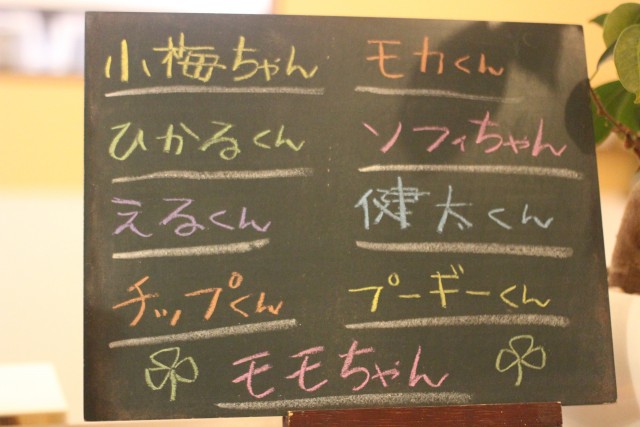 小梅ちゃん モカくん
ひかるくん ソフィちゃん
えるくん 健太くん
チップくん プーギーくん
モモちゃん